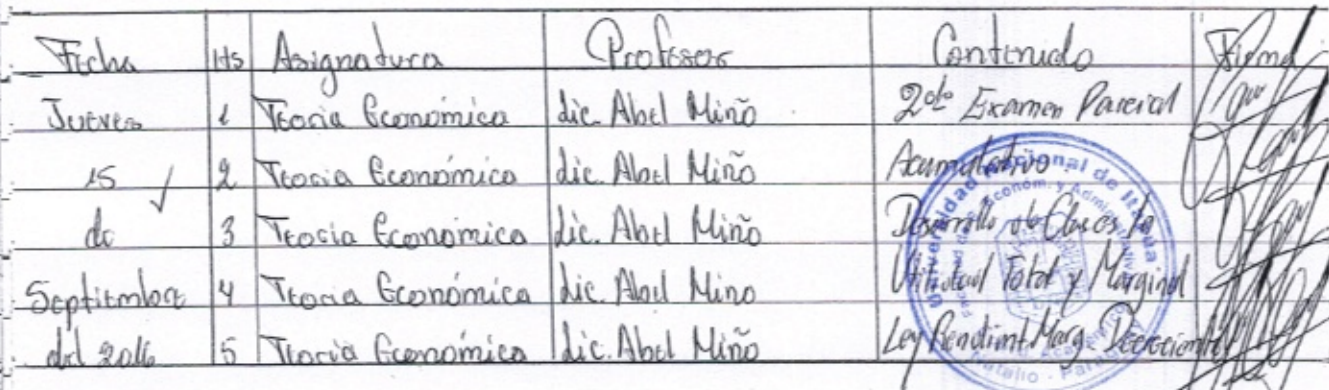 Fecha Hs Asignatura Profesor Contenido Firma
Jueves 1 Teoria Económica Lic. Abel Miño 2do Examen Parcial
15 2 Teoria Económica Lic. Abel Miño Acumulativo
de 3 Teoria Económica Lic. Abel Miño Desarrollo de Clases la
Septiembre 4 Teoria Económica Lic. Abel Miño Utilidad Total y Marginal
del 2016 5 Teoria Económica Lic. Abel Miño Ley Rendimt. Marg. Decreciente
Universidad Nacional de Itapúa